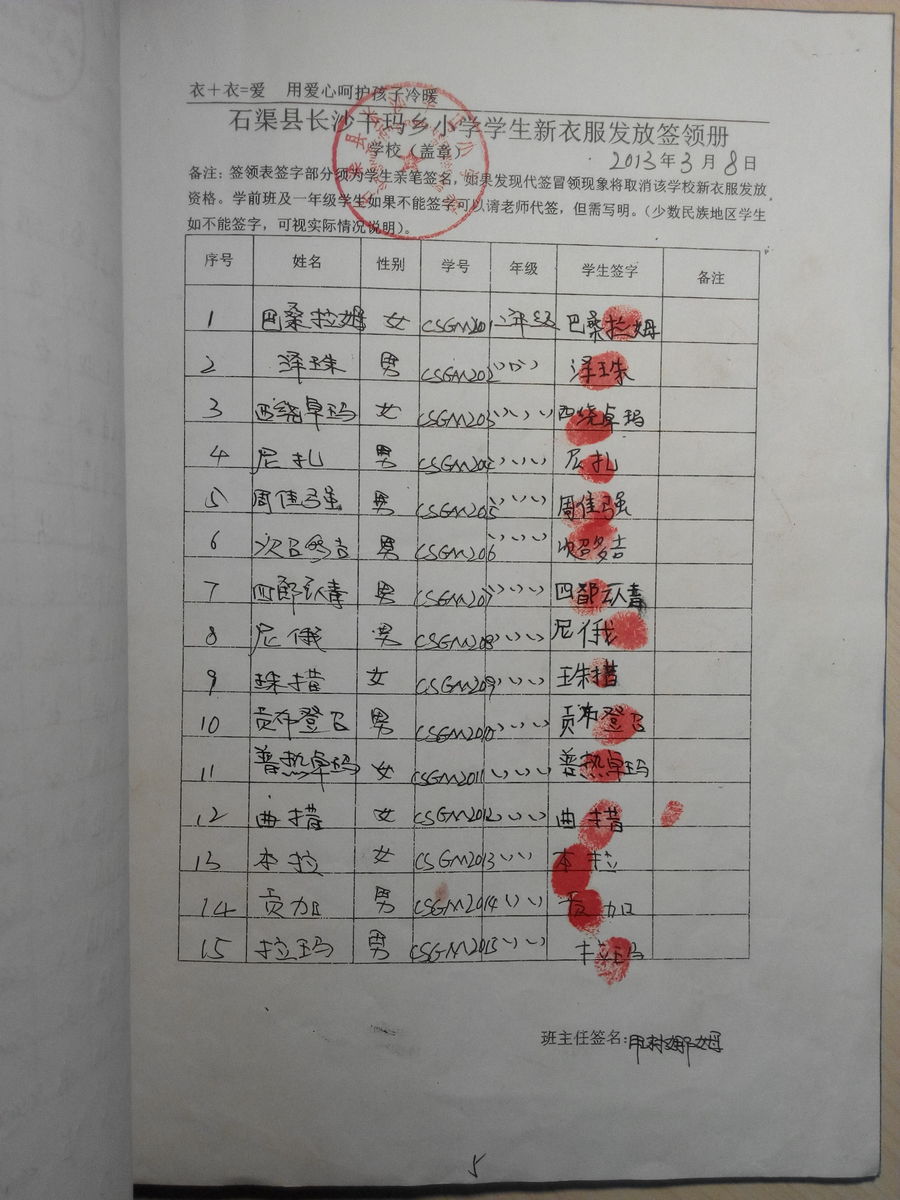 衣+衣=爱 用爱心呵护孩子冷暖
石渠县长沙干玛乡小学学生新衣服发放签领册
学校（盖章）
2013年3月8日
备注：签领表签字部分须为学生亲笔签名，如果发现代签冒领现象将取消该学校新衣服发放
资格。学前班及一年级学生如果不能签字可以请老师代签，但需写明。（少数民族地区学生
如不能签字，可视实际情况说明）。
序号 姓名 性别 学号 年级 学生签字 备注
1 巴桑拉姆 女 CSGM201 二年级 巴桑拉姆
2 泽珠 男 CSGM202 泽珠
3 西绕卓玛 女 CSGM203 西绕卓玛
4 尼扎 男 CSGM204 尼扎
5 周佳强 男 CSGM205 周佳强
6 次召多吉 男 CSGM206 次召多吉
7 四郎 男 CSGM207 四郎
8 尼俄 男 CSGM208 尼俄
9 珠措 女 CSGM209 珠措
10 贡布登 男 CSGM2010 贡布登
11 普热卓玛 女 CSGM2011 普热卓玛
12 曲措 女 CSGM2012 曲措
13 本拉 女 CSGM2013 本拉
14 贡加 男 CSGM2014 贡加
15 拉玛 男 CSGM2015 拉玛
班主任签名：
5